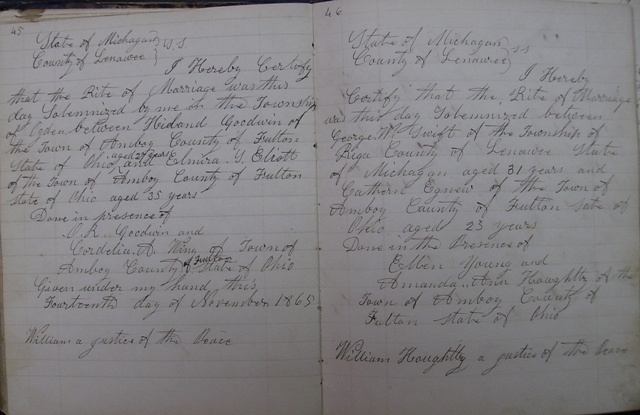 45
State of Michagan } S.S.
County of Lenawee }
I Hereby Certify
that the Rite of Marriage was this
day Solemnized by me in the Township
of Ogden between Hidand Goodwin of
the Town of Amboy County of Fulton
State of Ohio aged 27 years and Almira. S. Elcott
of the Town of Amboy County of Fulton
State of Ohio aged 35 years
Done in presence of
O. R. Goodwin and
Cordelia. A. Wing of Town of
Amboy County of Fulton State of Ohio
Given under my hand this
Fourteenth day of November 1865
William a justice of the Peace
46
State of Michagan } SS
County of Lenawee }
I Hereby
Certify that the Rite of Marriage
was this day Solemnized between
George. W. Swift of the Township of
Riga County of Lenawee State
of Michagan aged 31 years and
Cathern Egnew of the Town of
Amboy County of Fulton sate of
Ohio aged 23 years
Done in the Presence of
Ebben Young and
Amanda. Ann Houghtly of the
Town of Amboy County of
Fulton State of Ohio
William Houghtly a justice of the Peace